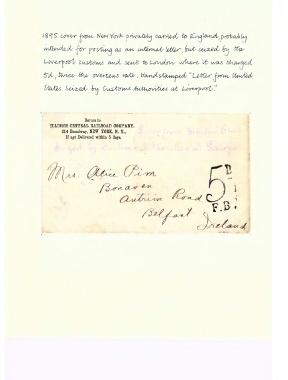 1895 cover from New York privately carried to England, probably
intended for posting as an internal letter, but seized by the
Liverpool customs and sent to London where it was charged
5d, twice the overseas rate. Handstamped "Letter from United
States Seized by Customs Authorities at Liverpool."
Return to
ILLINOIS CENTRAL RAILROAD COMPANY.
214 Broadway, NEW YORK, N. Y.,
If not Delivered within 5 days.
Letter from United States
Seized by Customs Authorities at Liverpool
Mrs. Alice Pim
Bonaven
Antrim Road
Belfast
Ireland
5D
F.B.